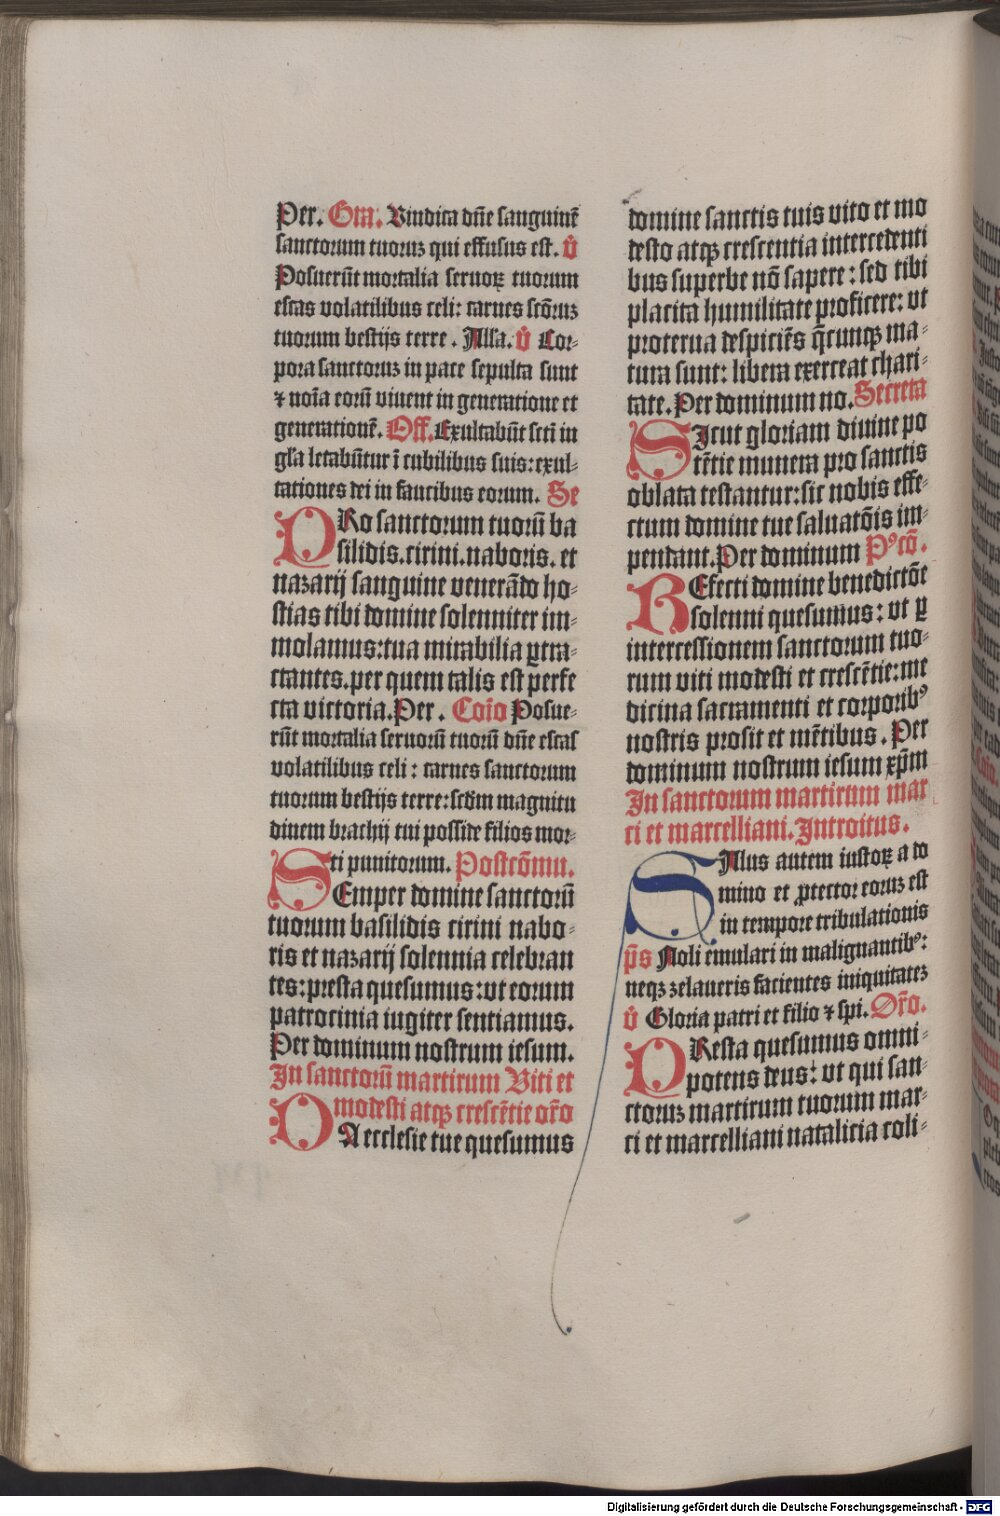 Per. Gra. Vindica dñe sanguinẽ
sanctorum tuoruꝫ qui effusus est. v̊
Posuerũt mortalia seruoꝝ tuorum
escas volatilibus celi: carnes scõruꝫ
tuorum bestijs terre. Alla. v̊ Cor-
pora sanctoruꝫ in pace sepulta sunt
⁊ noĩa eorũ viuent in generatione et
generationẽ. Off. Exultabũt scti in
gl̃a letabũtur ĩ cubilibus suis: exul-
tationes dei in faucibus eorum. Se
PRo sanctorum tuorũ ba
silidis. cirini. naboris. et
nazarij sanguine venerãdo ho-
stias tibi domine solenniter im-
molamus: tua mirabilia ꝑtra-
ctantes. per quem talis est perfe
cta victoria. Per. Coĩo Posue-
rũt mortalia seruorũ tuorũ dñe escas
volatilibus celi: carnes sanctorum
tuorum bestijs terre: scd̃m magnitu
dinem brachij tui posside filios mor-
ti punitorum. Postcõmu.
SEmper domine sanctorũ
tuorum basilidis cirini nabo-
ris et nazarij solennia celebran
tes: presta quesumus: vt eorum
patrocinia iugiter sentiamus.
Per dominum nostrum iesum.
In sanctorũ martirum Viti et
modesti atqꝫ crescẽtie or̃o
DA ecclesie tue quesumus
domine sanctis tuis vito et mo
desto atqꝫ crescentia intercedenti
bus superbe nõ sapere: sed tibi
placita humilitate proficere: vt
proterua despiciẽs q̃cunqꝫ ma-
tura sunt: libera exerceat chari-
tate. Per dominum no. Secreta
SIcut gloriam diuine po
tẽtie munera pro sanctis
oblata testantur: sic nobis effe-
ctum domine tue saluatõis im-
pendant. Per dominum Pꝰcõ.
REfecti domine benedictõe
solenni quesumus: vt ꝑ
intercessionem sanctorum tuo-
rum viti modesti et crescẽtie: me
dicina sacramenti et corporibꝰ
nostris prosit et mẽtibus. Per
dominum nostrum iesum xp̃m
In sanctorum martirum mar
ci et marcelliani. Introitus.
SAlus autem iustoꝝ a do
mino et ꝓtector eoruꝫ est
in tempore tribulationis
p̃s Noli emulari in malignantibꝰ:
neqꝫ zelaueris facientes iniquitateꝫ
v̊ Gloria patri et filio ⁊ spi. Or̃o.
PResta quesumus omni-
potens deus: vt qui san-
ctoruꝫ martirum tuorum mar-
ci et marcelliani natalicia coli-
Digitalisierung gefördert durch die Deutsche Forschungsgemeinschaft - DFG